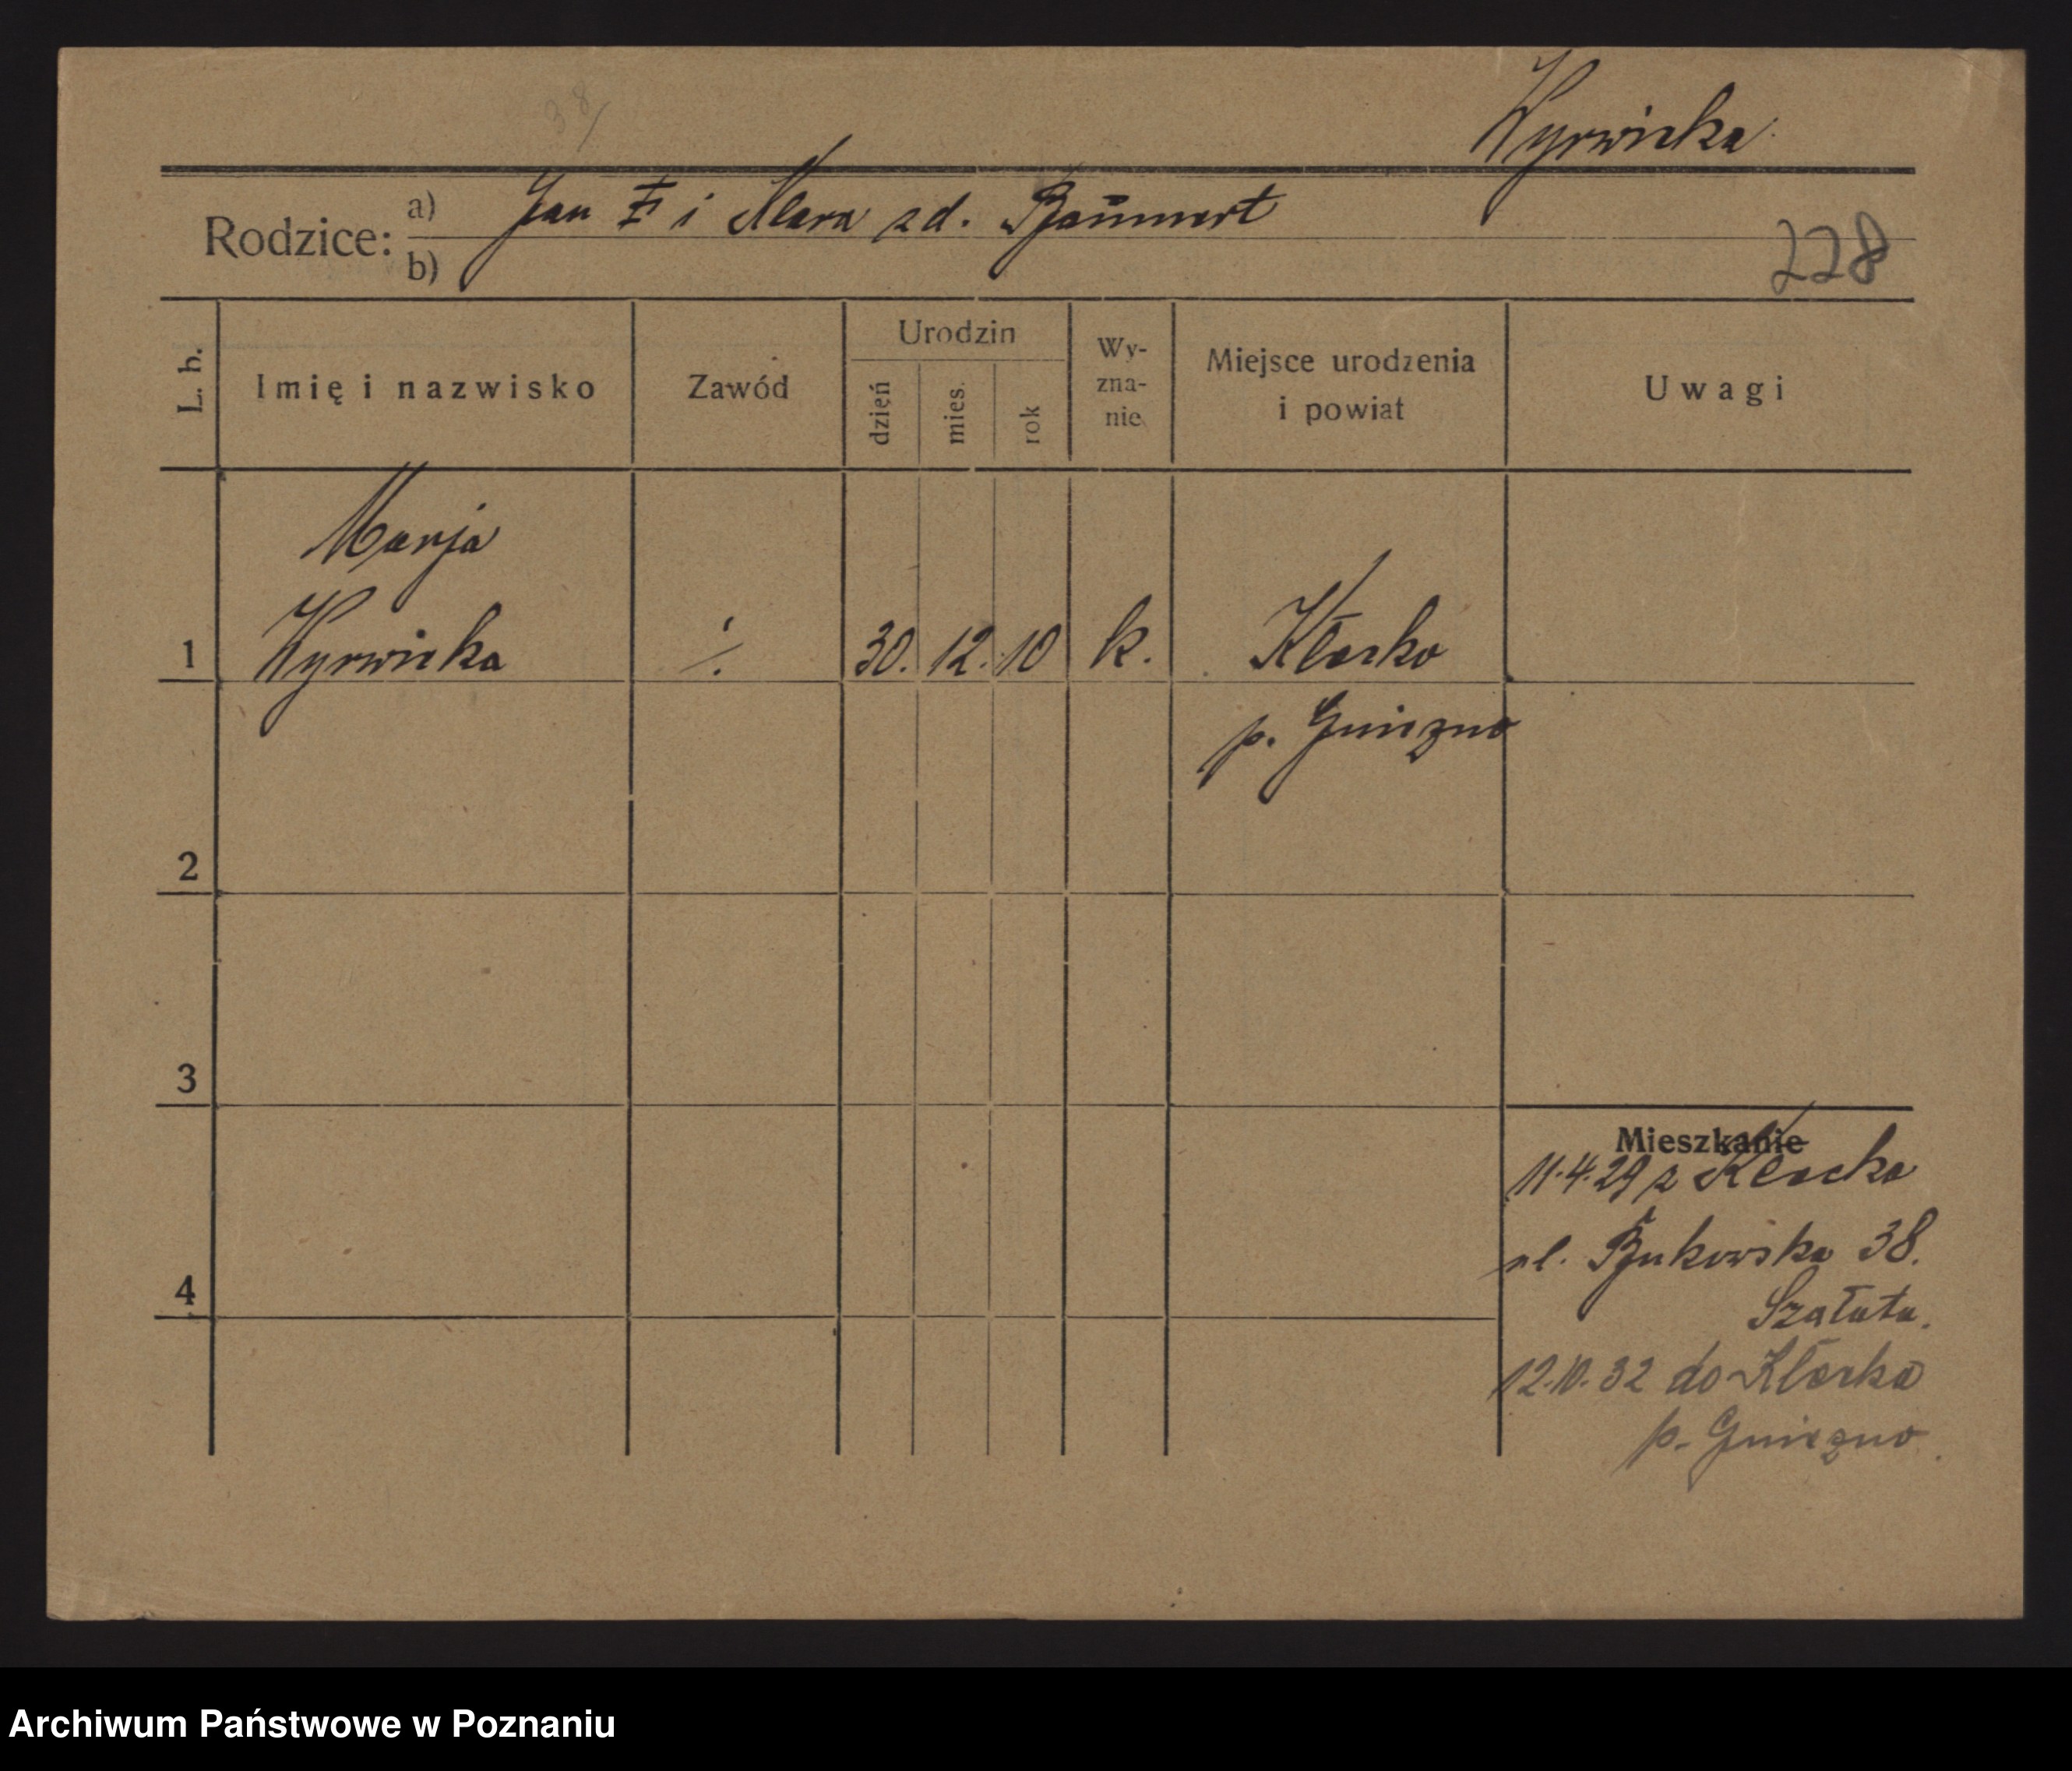 38/
Wyrwicka
Rodzice: a) Jan i Klara zd. Baumert
b)
228
L. b. Imię i nazwisko Zawód Urodzin dzień mies. rok Wy-zna-nie Miejsce urodzenia i powiat Uwagi
Marja
1 Wyrwicka ./. 30. 12. 10 k. Kłecko
p. Gniezno
2
3
Mieszkanie
11.4.29 z Kłecka
ul. Bukowska 38.
4
Szałata.
12.10.32 do Kłecka
p. Gniezno.
Archiwum Państwowe w Poznaniu